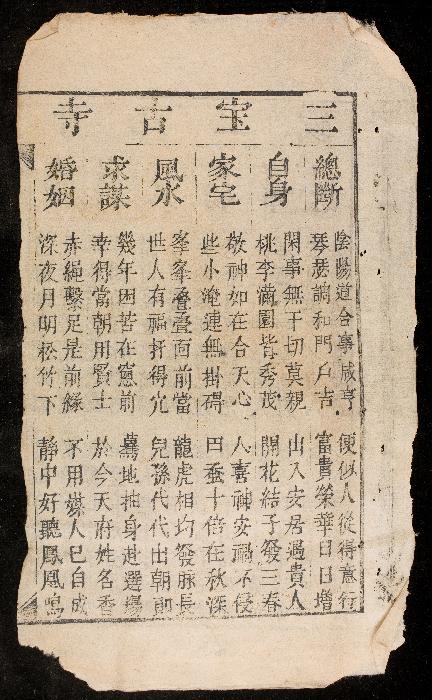 三宝古寺
總斷
陰陽道合事咸亨 便似人從得意行
琴瑟調和門戶吉 富貴榮華日日增
自身
閑事無干切莫親 出入安居遇貴人
桃李滿園皆秀茂 開花結子發三春
家宅
敬神如在合天心 人喜神安禍不侵
些小淹連無掛碍 田蚕十倍在秋深
風水
峯峯疊疊面前當 龍虎相均發脉長
世人有福扦得穴 兒孫代代出朝
求謀
幾年困苦在窻前 驀地抽身赴選場
幸得當朝用賢士 於今天府姓名香
婚姻
赤繩繫足是前緣 不用媒人已自成
深夜月明松竹下 靜中好聽鳳凰鳴